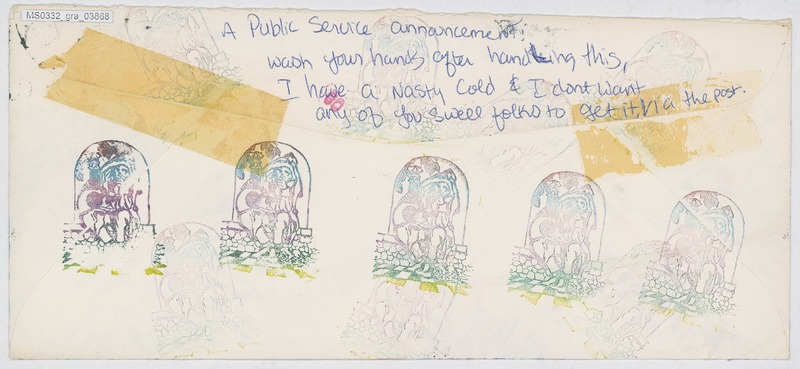 MS0332_gra_03868
A Public Service announcement:
wash your hands after handling this,
I have a Nasty Cold & I dont want
any of you sweet folks to get it, via the post.